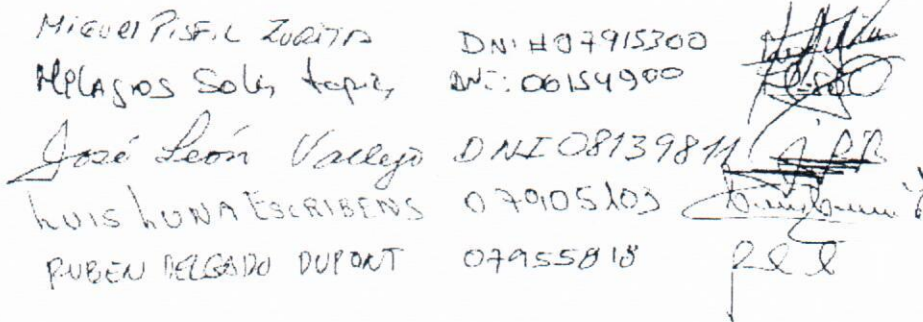 Miguel Pisfil Zurita DNI #07915300
Milagros Solis tapia, DNI: 06154900
José León Vallejo DNI 08139811
LUIS LUNA ESCRIBENS 07905103
RUBEN DELGADO DUPONT 07955818